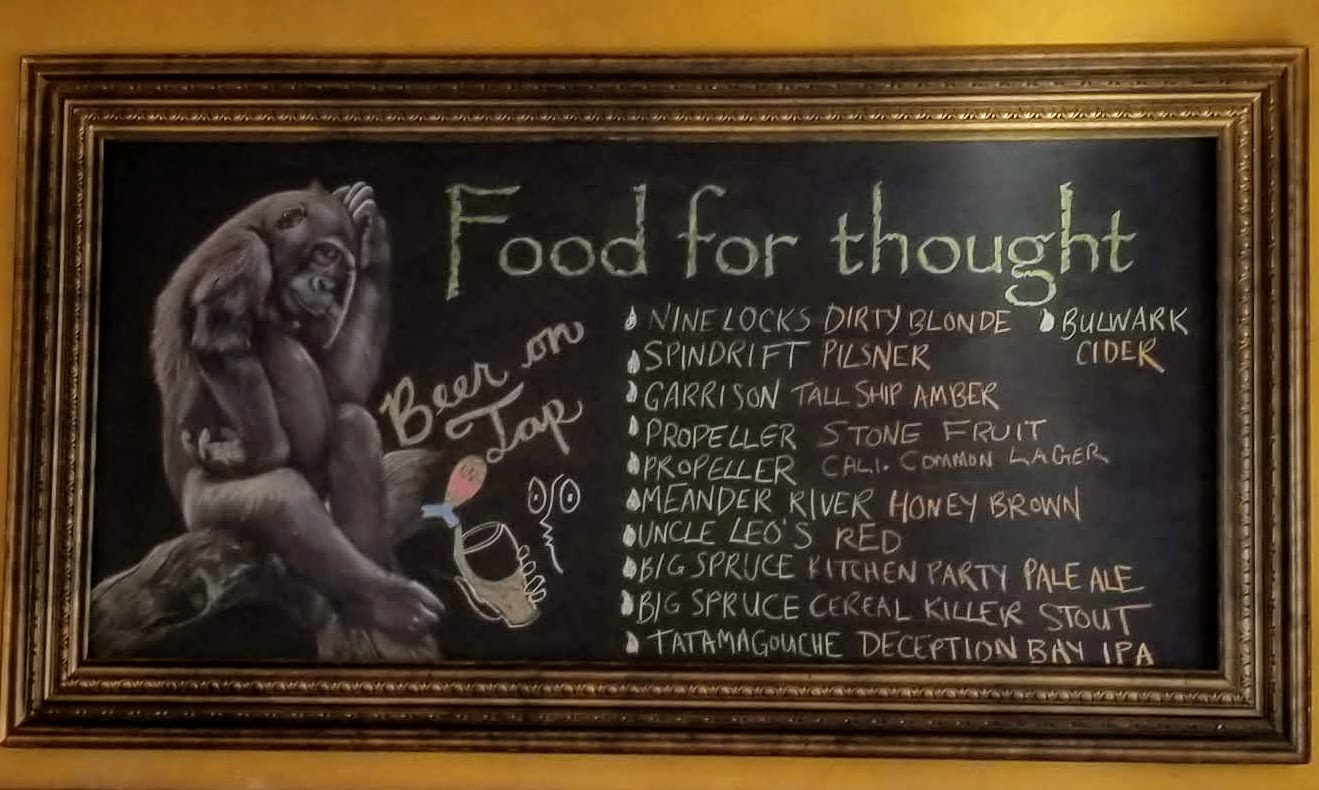 Food for thought
Beer on
Tap
NINE LOCKS DIRTY BLONDE
SPINDRIFT PILSNER
GARRISON TALL SHIP AMBER
PROPELLER STONE FRUIT
PROPELLER CALI. COMMON LAGER
MEANDER RIVER HONEY BROWN
UNCLE LEO'S RED
BIG SPRUCE KITCHEN PARTY PALE ALE
BIG SPRUCE CEREAL KILLER STOUT
TATAMAGOUCHE DECEPTION BAY IPA
BULWARK
CIDER